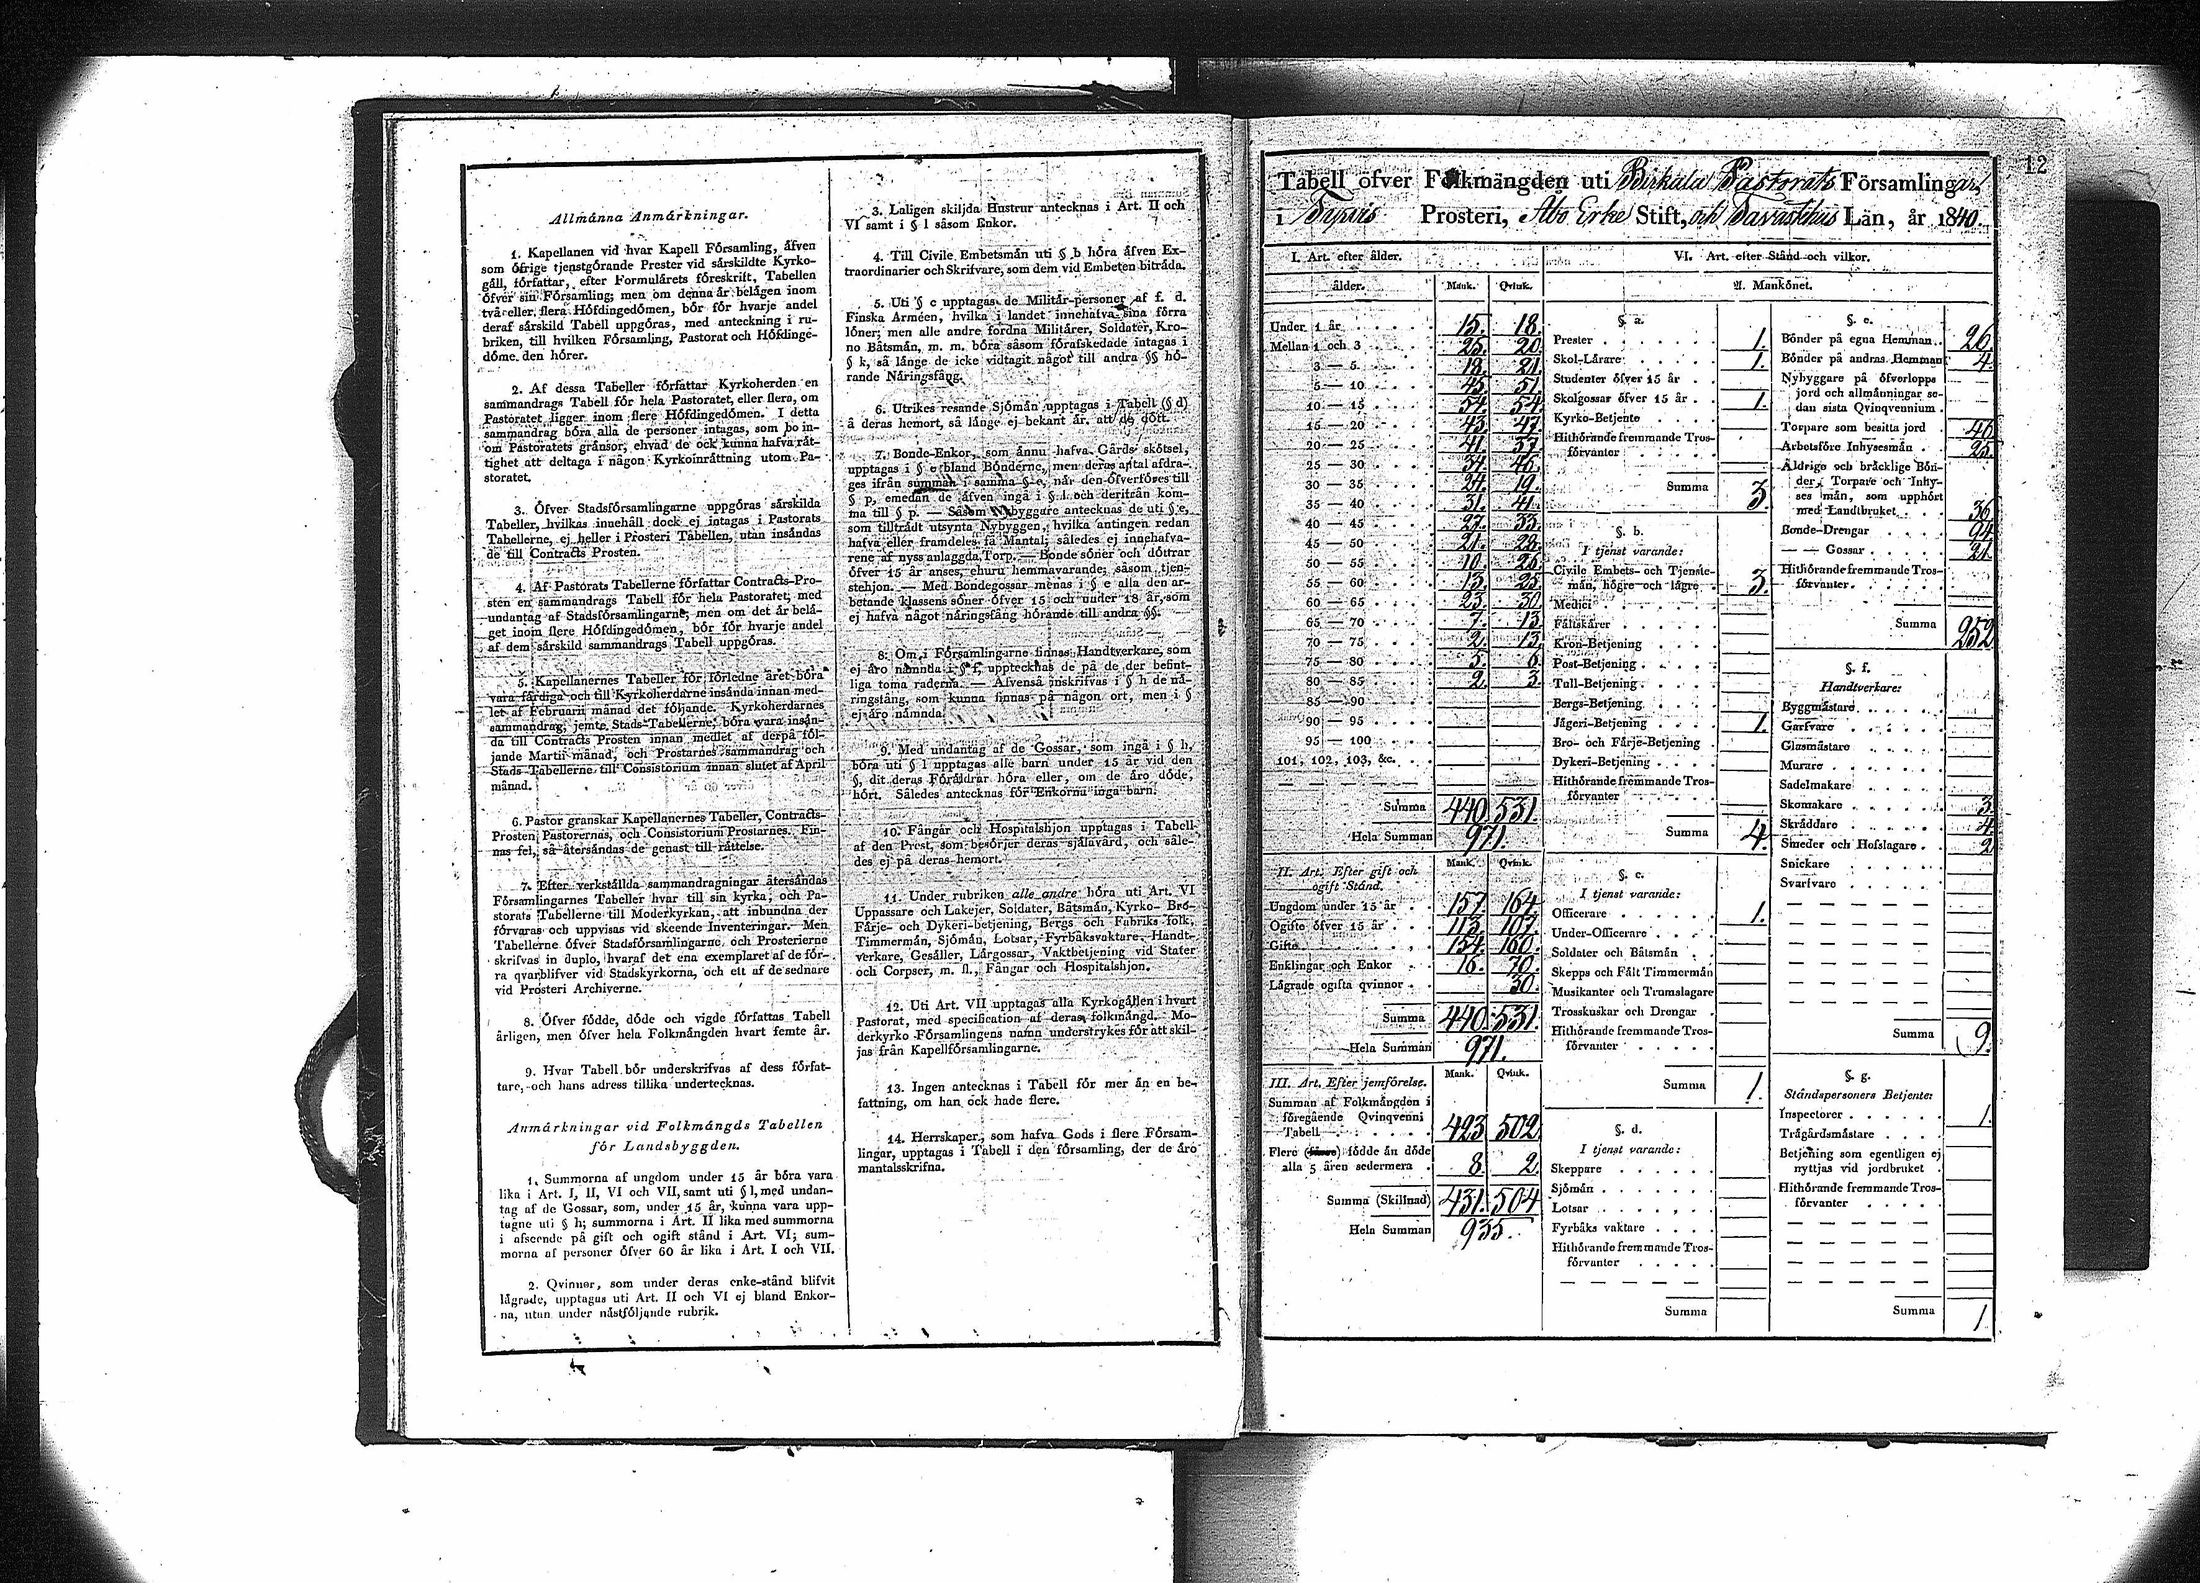 Allmánna Anmárkningar.
1. Kapellanen vid hvar Kapell Fórsamling, åfven
som ófrige tjenstgórande Prester vid sårskildte Kyrko-
gåll, fórfattar, efter Formulårets fóreskrift, Tabellen
ófver sin Fórsamling; men om denna år belågen inom
två eller flera Hófdingedómen, bór fór hvarje andel
deraf sårskild Tabell uppgóras, med anteckning i ru-
briken, till hvilken Fórsamling, Pastorat och Hófdinge-
dóme den hórer.
2. Af dessa Tabeller fórfattar Kyrkoherden en
sammandrags Tabell fór hela Pastoratet, eller flera, om
Pastoratet ligger inom flere Hófdingedómen. I detta
sammandrag bóra alla de personer intagas, som bo in-
om Pastoratets grånsor, ehvad de ock kunna hafva råt-
tighet att deltaga i någon Kyrkoinråttning utom Pa-
storatet.
3. Ófver Stadsfórsamlingarne uppgóras sårskilda
Tabeller, hvilkas innehåll dock ej intagas i Pastorats
Tabellerne, ej heller i Prosteri Tabellen, utan insåndas
de till Contracts Prosten.
4. Af Pastorats Tabellerne fórfattar Contracts-Pro-
sten en sammandrags Tabell fór hela Pastoratet, med
undantag af Stadsfórsamlingarne; men om det år belå-
get inom flere Hófdingedómen, bór fór hvarje andel
af dem sårskild sammandrags Tabell uppgóras.
5. Kapellanernes Tabeller fór fórledne året bóra
vara fårdiga och till Kyrkoherdarne insånda innan med-
let af Februarii månad det fóljande. Kyrkoherdarnes
sammandrag, jemte Stads-Tabellerne, bóra vara insån-
da till Contracts Prosten innan medlet af derpå fól-
jande Martii månad, och Prostarnes sammandrag och
Stads Tabellerne till Consistorium innan slutet af April
månad.
6. Pastor granskar Kapellanernes Tabeller, Contracts-
Prosten Pastorernas, och Consistorium Prostarnes. Fin-
nas fel, så återsåndas de genast till råttelse.
7. Efter verkstållda sammandragningar återsåndas
Fórsamlingarnes Tabeller hvar till sin kyrka, och Pa-
storats Tabellerne till Moderkyrkan, att inbundna der
fórvaras och uppvisas vid skeende Inventeringar. Men
Tabellerne ófver Stadsfórsamlingarne och Prosterierne
skrifvas in duplo, hvaraf det ena exemplaret af de fór-
ra qvarblifver vid Stadskyrkorna, och ett af de sednare
vid Prosteri Archiverne.
8. Ófver fódde, dóde och vigde fórfattas Tabell
årligen, men ófver hela Folkmångden hvart femte år.
9. Hvar Tabell bór underskrifvas af dess fórfat-
tare, och hans adress tillika undertecknas.
Anmárkningar vid Folkmångds Tabellen
fór Landsbyggden.
1. Summorna af ungdom under 15 år bóra vara
lika i Art. I, II, VI och VII, samt uti § l, med undan-
tag af de Gossar, som, under 15 år, kunna vara upp-
tagne uti § h; summorna i Art. II lika med summorna
i afseende på gift och ogift stånd i Art. VI; sum-
morna af personer ófver 60 år lika i Art. I och VII.
2. Qvinnor, som under deras enke-stånd blifvit
lågrade, upptagas uti Art. II och VI ej bland Enkor-
na, utan under nåstfóljande rubrik.
3. Laligen skiljda Hustrur antecknas i Art. II och
VI samt i § l såsom Enkor.
4. Till Civile Embetsmån uti § b hóra åfven Ex-
traordinarier och Skrifvare, som dem vid Embeten bitråda.
5. Uti § c upptagas de Militår-personer af f. d.
Finska Arméen, hvilka i landet innehafva sina fórra
lóner; men alle andre fordna Militårer, Soldater, Kro-
no Båtsmån, m. m. bóra såsom fórafskedade intagas i
§ k, så långe de icke vidtagit något till andra §§ hó-
rande Nåringsfång.
6. Utrikes resande Sjómån upptagas i Tabell (§ d)
å deras hemort, så långe ej bekant år, att de dótt.
7. Bonde-Enkor, som ånnu hafva Gårds skótsel,
upptagas i § e bland Bónderne, men deras antal afdra-
ges ifrån summan i samma § e, når den ófverfóres till
§ p, emedan de åfven ingå i § l och derifrån kom-
ma till § p. — Såsom Nybyggare antecknas de uti § e,
som tilltrådt utsynta Nybyggen, hvilka antingen redan
hafva eller framdeles få Mantal; således ej innehafva-
rene af nyss anlaggda Torp. — Bonde sóner och dóttrar
ófver 15 år anses, churu hemmavarande, såsom tjen-
stehjon. — Med Bondegossar menas i § e alla den ar-
betande klassens sóner ófver 15 och under 18 år, som
ej hafva något nåringsfång hórande till andra §§.
8. Om i Fórsamlingarne finnas Handtverkare, som
ej åro nåmnda i § f, uppteckhas de på de der befint-
liga toma raderna. — Åfvenså inskrifvas i § h de nå-
ringsfång, som kunna finnas på någon ort, men i §
ej åro nåmnda.
9. Med undantag af de Gossar, som ingå i § h,
bóra uti § l upptagas alle barn under 15 år vid den
§, dit deras Fóråldrar hóra eller, om de åro dóde,
hórt. Således antecknas fór Enkorna inga barn.
10. Fångar och Hospitalshjon upptagas i Tabell
af den Prest, som besórjer deras sjålavård, och såle-
des ej på deras hemort.
11. Under rubriken alle andre hóra uti Art. VI
Uppassare och Lakejer, Soldater, Båtsmån, Kyrko- Bro-
Fårje- och Dykeri-betjening, Bergs och Fabriks folk,
Timmermån, Sjómån, Lotsar, Fyrbåksvaktare, Handt-
verkare, Gesåller, Lårgossar, Vaktbetjening vid Stater
och Corpser, m. fl., Fångar och Hospitalshjon.
12. Uti Art. VII upptagas alla Kyrkogållen i hvart
Pastorat, med specification af deras folkmångd. Mo-
derkyrko Fórsamlingens namn understrykes fór att skil-
jas från Kapellfórsamlingarne.
13. Ingen antecknas i Tabell fór mer ån en be-
fattning, om han ock hade flere.
14. Herrskaper, som hafva Gods i flere Fórsam-
lingar, upptagas i Tabell i den fórsamling, der de åro
mantalsskrifna.
12
Tabell öfver Folkmängden uti Birkala Pastorats Församlingar
i Tyrvis Prosteri, Abo Erke Stift, och Tavastehus Län, år 1840.
I. Art. efter ålder.
ålder. Mank. Qvink.
Under 1 år 15. 18.
Mellan 1 och 3 25. 20.
3 — 5 18. 21.
5 — 10 45. 51.
10 — 15 54. 54.
15 — 20 43. 47.
20 — 25 41. 37.
25 — 30 34. 46.
30 — 35 24. 19.
35 — 40 31. 41.
40 — 45 27. 33.
45 — 50 21. 28.
50 — 55 10. 25.
55 — 60 13. 25.
60 — 65 23. 30.
65 — 70 7. 13.
70 — 75 2. 13.
75 — 80 5. 6.
80 — 85 2. 3.
85 — 90
90 — 95
95 — 100
101, 102, 103, &c.
Summa 440. 531.
Hela Summan 971.
II. Art. Efter gift och ogift Stånd. Mank. Qvink.
Ungdom under 15 år 157. 164.
Ogifte ófver 15 år 113. 107.
Gifte 154. 160.
Enklingar och Enkor 16. 70.
Lågrade ogifta qvinnor 30.
Summa 440. 531.
Hela Summan 971.
III. Art. Efter jemfórelse. Mank. Qvink.
Summan af Folkmångden i
fóregående Qvinqvenni
Tabell 423 502.
Flere fódde ån dóde
alla 5 åren sedermera 8. 2.
Summa (Skillnad) 431. 504
Hela Summan 935.
VI. Art. efter Stånd och vilkor.
A. Mankónet.
§. a.
Prester 1.
Skol-Lårare 1.
Studenter ófver 15 år
Skolgossar ófver 15 år 1.
Kyrko-Betjente
Hithórande fremmande Tros-
fórvanter
Summa 3.
§. b.
I tjenst varande:
Civile Embets- och Tjenste-
mån, hógre och lågre 3.
Medici
Fåltskårer
Kron-Betjening
Post-Betjening
Tull-Betjening
Bergs-Betjening
Jågeri-Betjening 1.
Bro- och Fårje-Betjening
Dykeri-Betjening
Hithórande fremmande Tros-
fórvanter
Summa 4.
§. c.
I tjenst varande:
Officerare 1.
Under-Officerare
Soldater och Båtsmån
Skepps och Fålt Timmermån
Musikanter och Trumslagare
Trosskuskar och Drengar
Hithórande fremmande Tros-
fórvanter
Summa 1.
§. d.
I tjenst varande:
Skeppare
Sjómån
Lotsar
Fyrbåks vaktare
Hithórande fremmande Tros-
fórvanter
Summa
§. e.
Bónder på egna Hemman 26.
Bónder på andras Hemman 4.
Nybyggare på ófverlopps
jord och allmånningar se-
dan sista Qvinqvennium
Torpare som besitta jord 46.
Arbetsfóre Inhysesmån 25.
Åldrige och bråcklige Bón-
der, Torpare och Inhy-
ses mån, som upphórt
med Landtbruket 36
Bonde-Drengar 94
— — Gossar 21.
Hithórande fremmande Tros-
fórvanter
Summa 252
§. f.
Handtverkare:
Byggmåstare
Garfvare
Glasmåstare
Murare
Sadelmakare
Skomakare 3
Skråddare 4.
Smeder och Hofslagare 2
Snickare
Svarfvare
Summa 9.
§. g.
Ståndspersoners Betjente:
Inspectorer 1.
Trågårdsmåstare
Betjening som egentligen ej
nyttjas vid jordbruket
Hithórande fremmande Tros-
fórvanter
Summa 1.